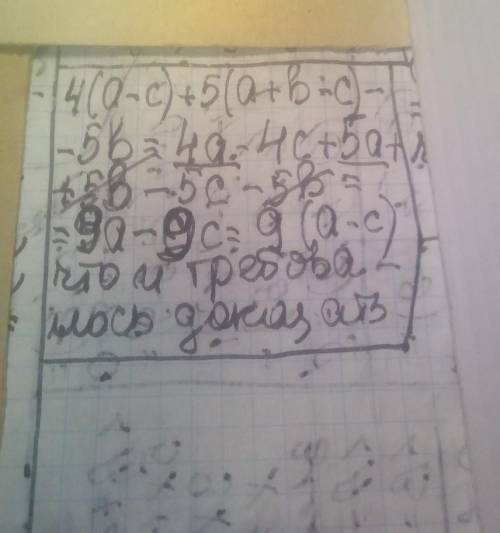 4(a-c)+5(a+b-c)-
-5b=4a-4c+5a+
+5b-5c-5b=
=9a-9c=9(a-c)
что и требова-
лось доказать